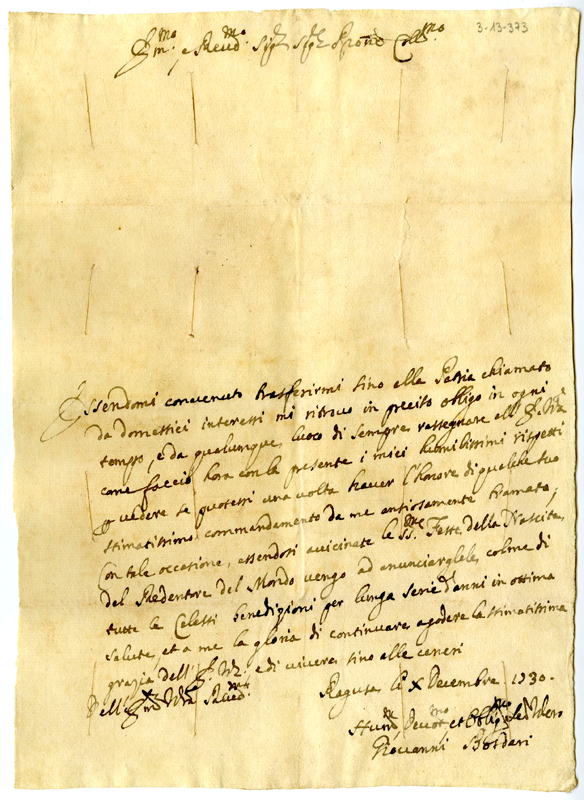 3-13-373
Ill.mo e Reved.mo Sig.r Sig.r Pron Coll.mo
Essendomi convenuto trasferirmi sino alla Patria chiamato
da domestici interessi mi ritrovo in preciso obligo in ogni
tempo, e da qualunque luoco di sempre rassegnare all' Ill. V.ra
come faccio hora con la presente i miei humilissimi rispetti
p vedere se potessi una volta haver l'honore di qualche suo
stimatissimo commandamento da me ansiosamente bramato;
Con tale occasione, essendosi avicinate le SS.me Feste della Nascita
del Redentore del Mondo vengo ad anunciarglele, colme di
tutte le Celesti benedizioni per lunga serie d'anni in ottima
salute, et a me la gloria di continuare a godere la stimatissima
grazia dell' Ill. V.ra e di vivere sino alle ceneri
Dell' Ill.ma V.ra Reved.ma
Ragusa li X Decembre 1730.
Hum.mo Devot.mo et Oblig.mo Ser. Vero
Giovanni Bosdari